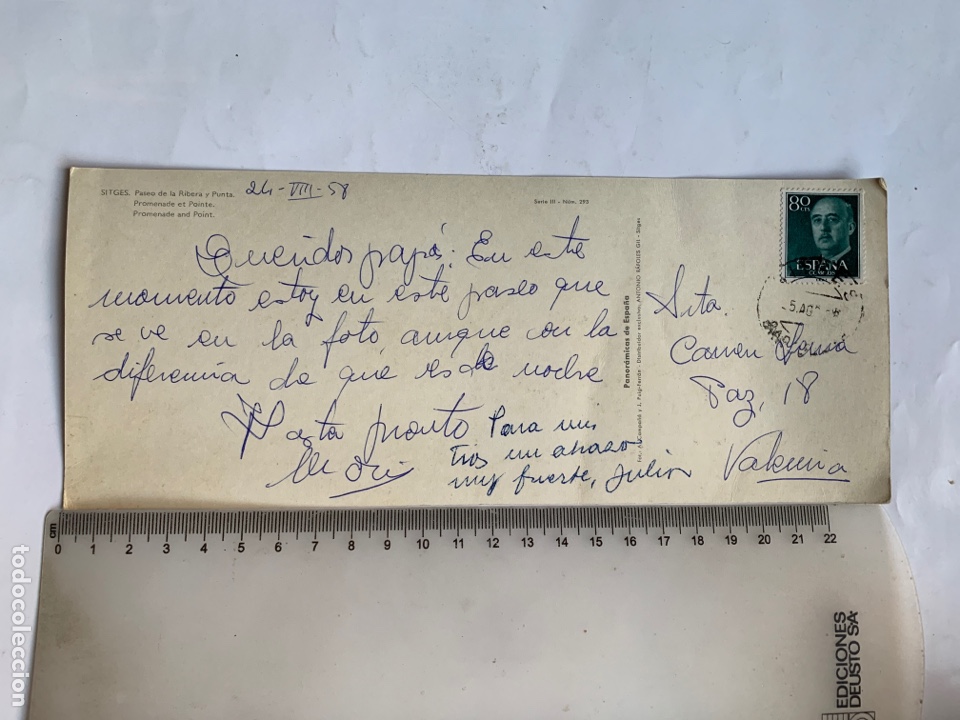 SITGES. Paseo de la Ribera y Punta.
Promenade et Pointe.
Promenade and Point.
24-VIII-58
Serie III - Núm. 293
Queridos papás: En este
momento estoy en este paseo que
se ve en la foto aunque con la
diferencia de que es de noche
Hasta pronto
Para un
tros un abrazo
muy fuerte, Julio
Panorámicas de España
Fot. A. Campañá y J. Puig-Ferrán - Distribuidor exclusivo, ANTONIO RAMOS GIL - Sitges
80
CTS
ESPAÑA
CORREOS
5 AGO
Srta.
Carmen
Paz, 18
Valencia
cm
0 1 2 3 4 5 6 7 8 9 10 11 12 13 14 15 16 17 18 19 20 21 22
EDICIONES
DEUSTO SA.
todocoleccion.net